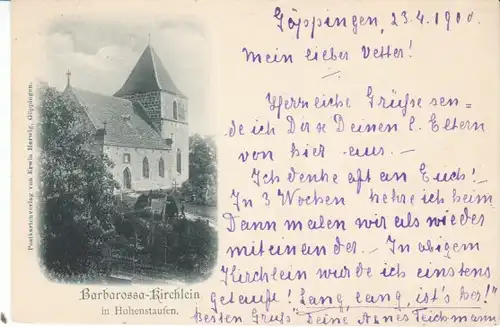 Göppingen, 23.4.1900.
Mein lieber Vetter!
Herzliche Grüße sen=
de ich Dir & Deinen l. Eltern
von hier aus. –
Ich denke oft an Euch! –
In 3 Wochen kehre ich heim
Dann malen wir als wieder
miteinander. – In obigem
Kirchlein wurde ich einstens
getauft! Lang, lang, ist's her!"
Besten Gruß Deine Agnes Teichmann
Barbarossa-Kirchlein
in Hohenstaufen.
Postkartenverlag von Erwin Herwig, Göppingen.